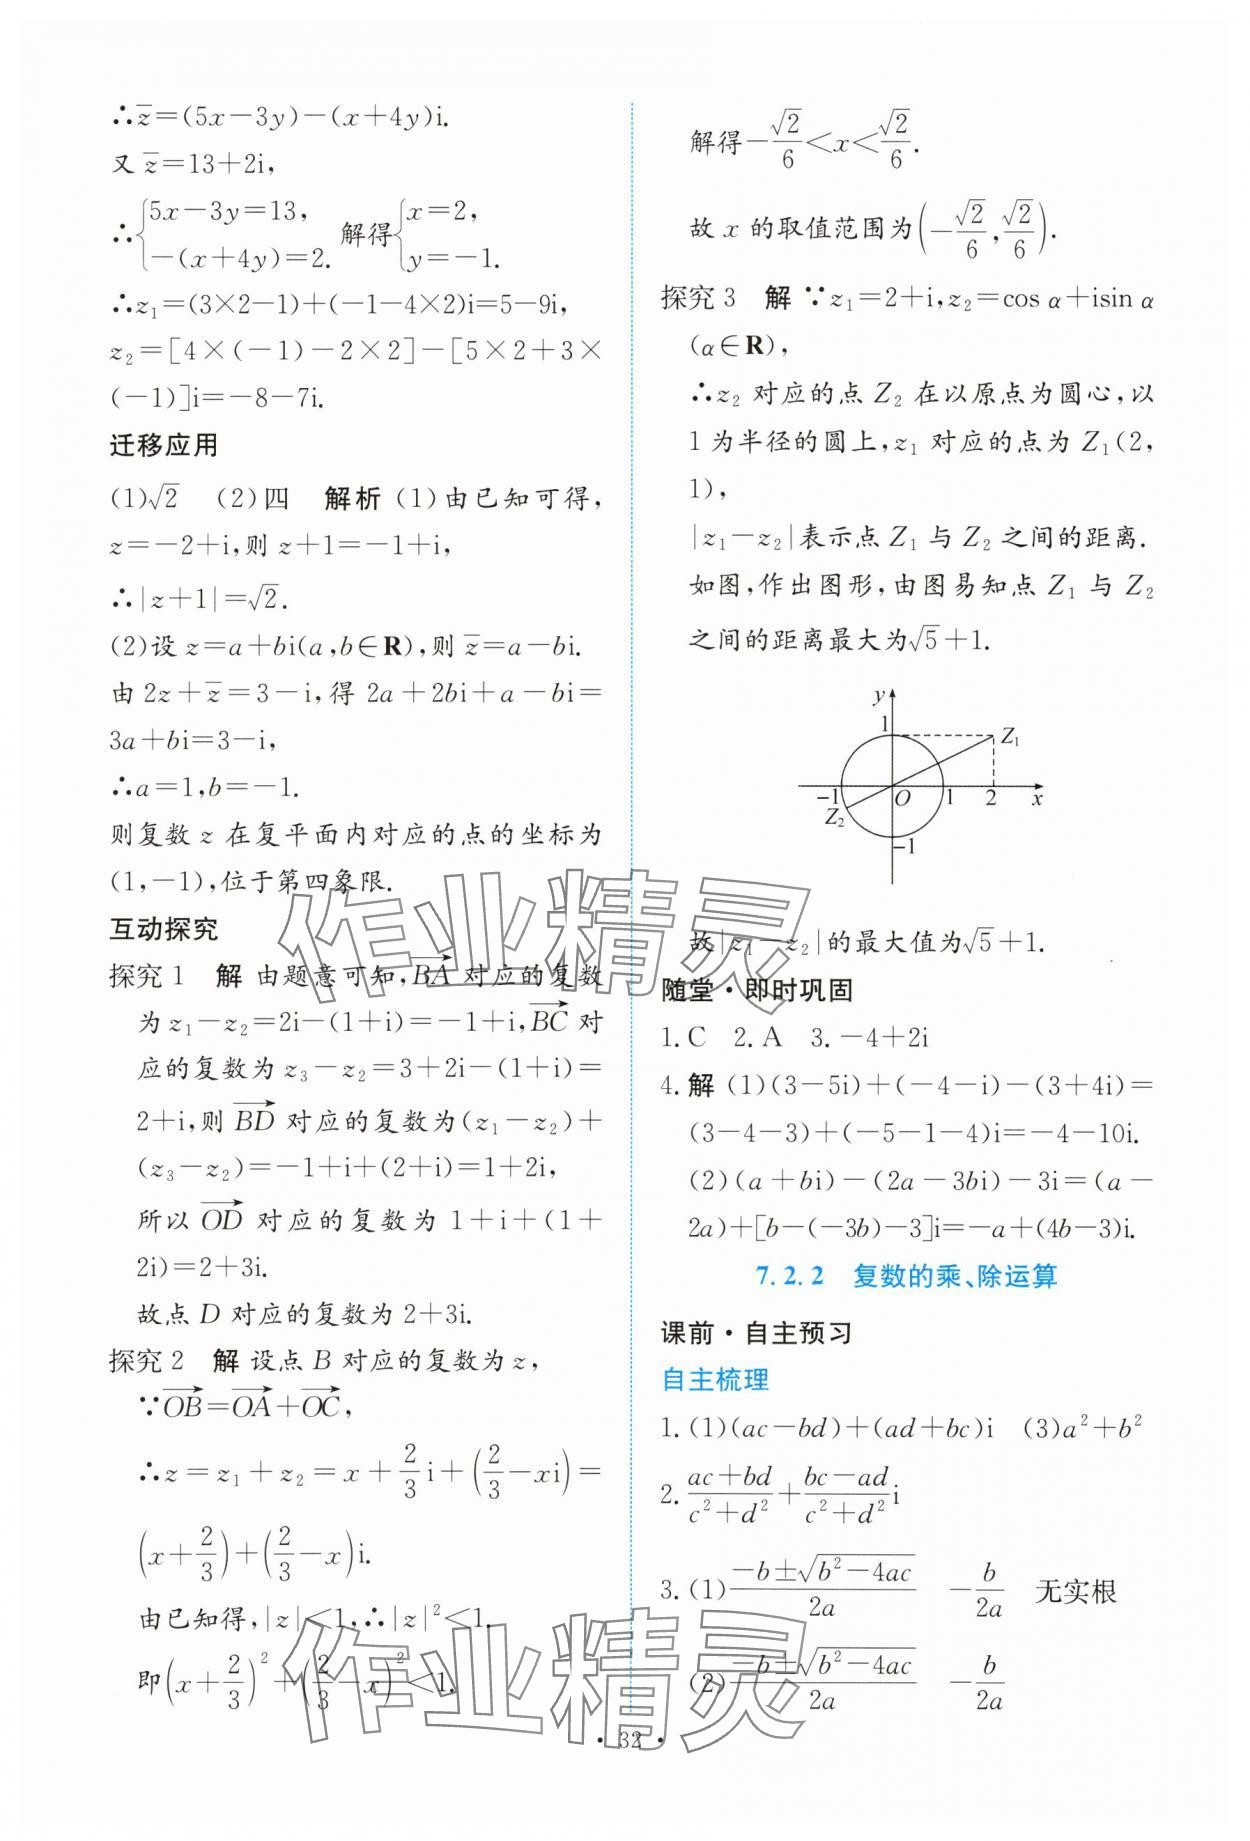 ∴z̅=(5x-3y)-(x+4y)i.
又 z̅=13+2i,
∴{5x-3y=13, -(x+4y)=2. 解得{x=2, y=-1.
∴z₁=(3×2-1)+(-1-4×2)i=5-9i,
z₂=[4×(-1)-2×2]-[5×2+3×
(-1)]i=-8-7i.
迁移应用
(1)√2 (2)四 解析 (1)由已知可得,
z=-2+i,则 z+1=-1+i,
∴|z+1|=√2.
(2)设 z=a+bi(a,b∈R),则 z̅=a-bi.
由 2z+z̅=3-i,得 2a+2bi+a-bi=
3a+bi=3-i,
∴a=1,b=-1.
则复数 z 在复平面内对应的点的坐标为
(1,-1),位于第四象限.
互动探究
探究 1 解 由题意可知,BA→ 对应的复数
为 z₁-z₂=2i-(1+i)=-1+i,BC→ 对
应的复数为 z₃-z₂=3+2i-(1+i)=
2+i,则 BD→ 对应的复数为(z₁-z₂)+
(z₃-z₂)=-1+i+(2+i)=1+2i,
所以 OD→ 对应的复数为 1+i+(1+
2i)=2+3i.
故点 D 对应的复数为 2+3i.
探究 2 解 设点 B 对应的复数为 z,
∵OB→=OA→+OC→,
∴z=z₁+z₂=x+2/3 i+(2/3-xi)=
(x+2/3)+(2/3-x)i.
由已知得,|z|<1,∴|z|²<1.
即(x+2/3)²+(2/3-x)²<1.
解得-√2/6<x<√2/6.
故 x 的取值范围为(-√2/6,√2/6).
探究 3 解 ∵z₁=2+i,z₂=cos α+isin α
(α∈R),
∴z₂ 对应的点 Z₂ 在以原点为圆心,以
1 为半径的圆上,z₁ 对应的点为 Z₁(2,
1),
|z₁-z₂|表示点 Z₁ 与 Z₂ 之间的距离.
如图,作出图形,由图易知点 Z₁ 与 Z₂
之间的距离最大为√5+1.
y
1
Z₁
-1 O 1 2 x
Z₂
-1
故|z₁-z₂|的最大值为√5+1.
随堂·即时巩固
1. C 2. A 3. -4+2i
4. 解 (1)(3-5i)+(-4-i)-(3+4i)=
(3-4-3)+(-5-1-4)i=-4-10i.
(2)(a+bi)-(2a-3bi)-3i=(a-
2a)+[b-(-3b)-3]i=-a+(4b-3)i.
7.2.2 复数的乘、除运算
课前·自主预习
自主梳理
1. (1)(ac-bd)+(ad+bc)i (3)a²+b²
2. (ac+bd)/(c²+d²)+(bc-ad)/(c²+d²) i
3. (1)(-b±√(b²-4ac))/2a -b/2a 无实根
(2)(-b±√(b²-4ac))/2a -b/2a
作业精灵
作业精灵
· 32 ·